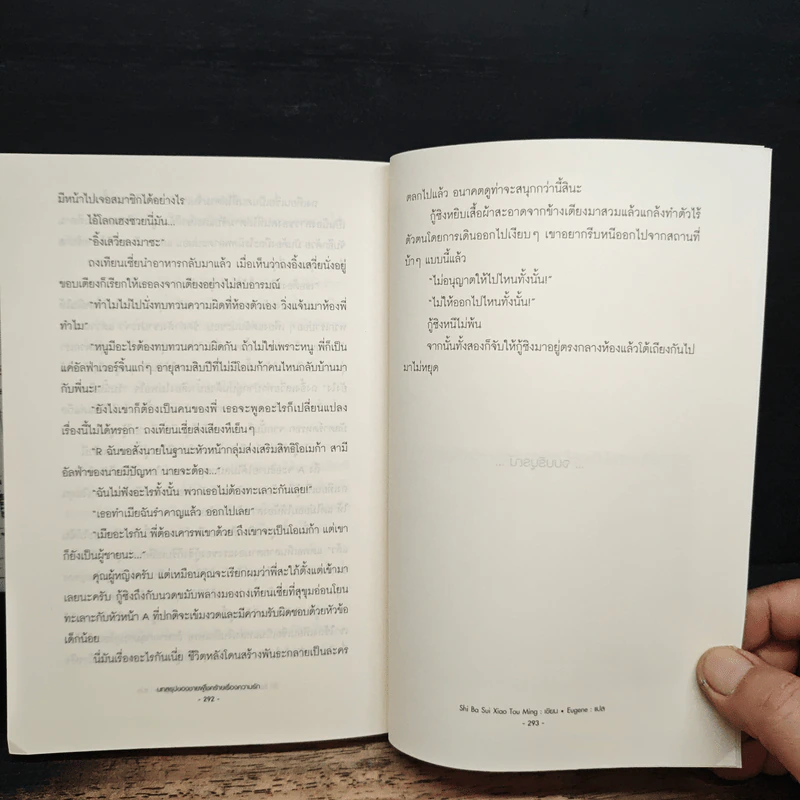 มีหน้าไปเจอสมาชิกได้อย่างไร
ไอ้โลกเฮงซวยนี่มัน...
“อิ้งเสวี่ยลงมาซะ”
ถงเทียนเซี่ยนำอาหารกลับมาแล้ว เมื่อเห็นว่าถงอิ้งเสวี่ยนั่งอยู่
ขอบเตียงก็เรียกให้เธอลงจากเตียงอย่างไม่สบอารมณ์
“ทำไมไม่ไปนั่งทบทวนความผิดที่ห้องตัวเอง วิ่งแจ้นมาห้องพี่
ทำไม”
“หนูมีอะไรต้องทบทวนความผิดกัน ถ้าไม่ใช่เพราะหนู พี่ก็เป็น
แค่อัลฟ่าเวอร์จิ้นแก่ๆ อายุสามสิบปีที่ไม่มีโอเมก้าคนไหนกลับบ้านมา
กับพี่นะ!”
“ยังไงเขาก็ต้องเป็นคนของพี่ เธอจะพูดอะไรก็เปลี่ยนแปลง
เรื่องนี้ไม่ได้หรอก” ถงเทียนเซี่ยส่งเสียงหึเย็นๆ
“R ฉันขอสั่งนายในฐานะหัวหน้ากลุ่มส่งเสริมสิทธิโอเมก้า สามี
อัลฟ่าของนายมีปัญหา นายจะต้อง...”
“ฉันไม่ฟังอะไรทั้งนั้น พวกเธอไม่ต้องทะเลาะกันเลย!”
“เธอทำเมียฉันรำคาญแล้ว ออกไปเลย”
“เมียอะไรกัน พี่ต้องเคารพเขาด้วย ถึงเขาจะเป็นโอเมก้า แต่เขา
ก็ยังเป็นผู้ชายนะ...”
คุณผู้หญิงครับ แต่เหมือนคุณจะเรียกผมว่าพี่สะใภ้ตั้งแต่เข้ามา
เลยนะครับ กู้ซิงถึงกับนวดขมับพลางมองถงเทียนเซี่ยที่สุขุมอ่อนโยน
ทะเลาะกับหัวหน้า A ที่ปกติจะเข้มงวดและมีความรับผิดชอบด้วยหัวข้อ
เด็กน้อย
นี่มันเรื่องอะไรกันเนี่ย ชีวิตหลังโดนสร้างพันธะกลายเป็นละคร
บทสรุปของชายผู้โชคร้ายเรื่องความรัก
- 292 -
ตลกไปแล้ว อนาคตดูท่าจะสนุกกว่านี้สินะ
กู้ซิงหยิบเสื้อผ้าสะอาดจากข้างเตียงมาสวมแล้วแกล้งทำตัวไร้
ตัวตนโดยการเดินออกไปเงียบๆ เขาอยากรีบหนีออกไปจากสถานที่
บ้าๆ แบบนี้แล้ว
“ไม่อนุญาตให้ไปไหนทั้งนั้น!”
“ไม่ให้ออกไปไหนทั้งนั้น!”
กู้ซิงหนีไม่พ้น
จากนั้นทั้งสองก็จับให้กู้ซิงมาอยู่ตรงกลางห้องแล้วโต้เถียงกันไป
มาไม่หยุด
Shi Ba Sui Xiao Tou Ming : เขียน • Eugene : แปล
- 293 -